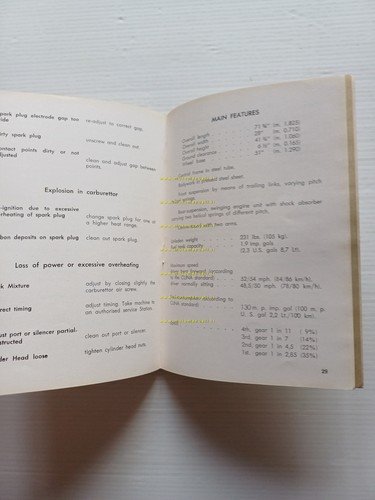 park plug electrode gap too
re-adjust to correct gap.
irty spark plug
unscrew and clean out.
ontact points dirty or not
djusted
clean and adjust gap between
points.
Explosion in carburettor
-ignition due to excessive
erheating of spark plug
change spark plug for one of
a higher heat range.
bon deposits on spark plug
clean out spark plug.
Loss of power or excessive overheating
k Mixture
adjust by closing slightly the
carburettor air screw.
rect timing
adjust timing. Take machine to
an authorised service Station.
ust port or silencer partial-
structed
clean out port or silencer.
der Head loose
tighten cylinder head nuts.
MAIN FEATURES
Overall length
Overall width
Overall height
Ground clearance
Wheel base
(m. 1,825)
28" (m. 0,710)
(m. 1,060)
(m. 0,165)
51" (m. 1,290)
frame in steel tube.
Bodywork in pressed steel sheet.
front suspension by means of trailing links, varying pitch
Rear-suspension, swinging engine unit with shock absorber
varying two helical springs of different pitch.
with two arms.
weight 231 lbs. (105 kg).
tank capacity 1.9 imp. gals
(2.3 U.S. gals 8,7 Lt).
Maximum speed
lying bent forward (according
to CUNA standard) 52/54 mph (84/86 km/h).
driver normally sitting 48,5/50 mph (78/80 km/h).
consumption (according to
CUNA standard) 130 m. p. imp. gal (100 m. p.
U. S. gal 2,2 Lt/100 km).
4th. gear 1 in 11 ( 9%)
3rd. gear 1 in 7 (14%)
2nd. gear 1 in 4,5 (22%)
1st. gear 1 in 2,85 (35%)
29